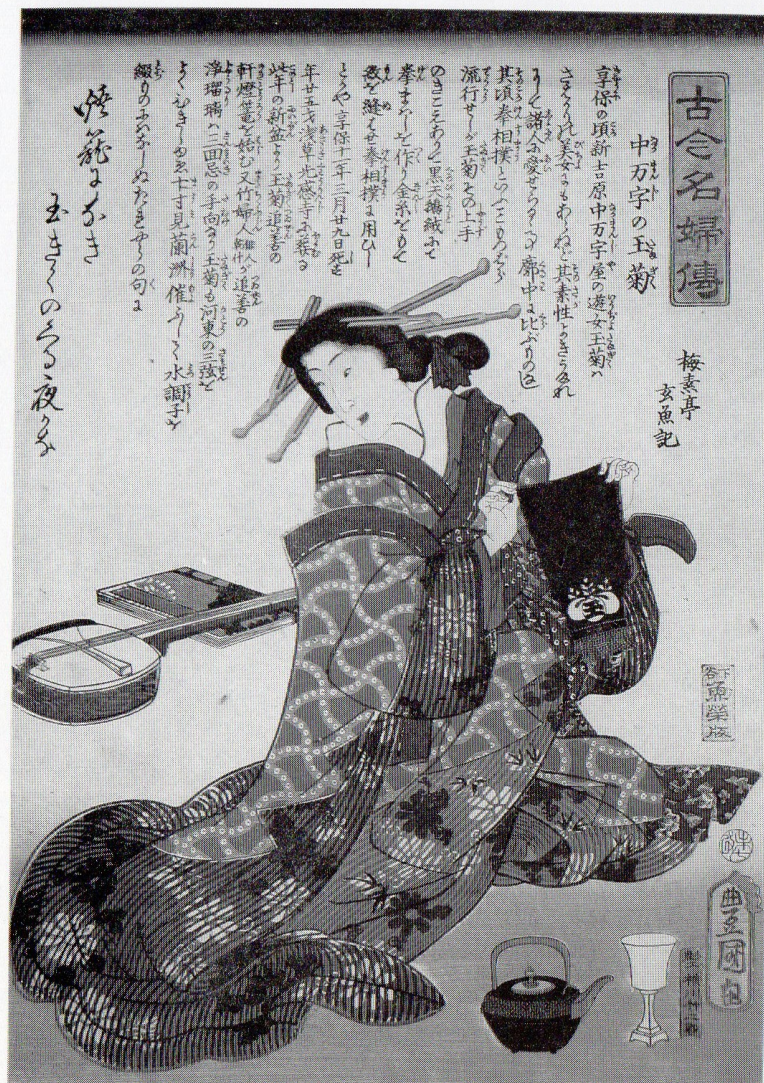 古今名婦傳
中万字の玉菊
梅素亭
玄魚記
享保の頃新吉原中万字屋の遊女玉菊ハ
さまでの美女にもあらねど其素性
て諸人に愛せらるゝ事廓中に比ぶものなし
其頃拳相撲といふこともつぱら
流行せしが玉菊その上手
のきこえあり黒天鵞絨にて
拳まはしを作り金糸をもて
紋を縫せ拳相撲に用ひし
とぞ享保十一年三月廿九日死す
年廿五才浅草光感寺に葬る
此年の新盆より玉菊追善の
軒燈篭を始む又竹婦人が追善の
浄瑠璃ハ三回忌の手向なり玉菊も河東の三弦を
よくひきしゆゑ十寸見蘭洲催して水調子を
綴りの句に
燈籠になき
玉きくのくる夜かな
玉
下谷
魚榮版
豊國画